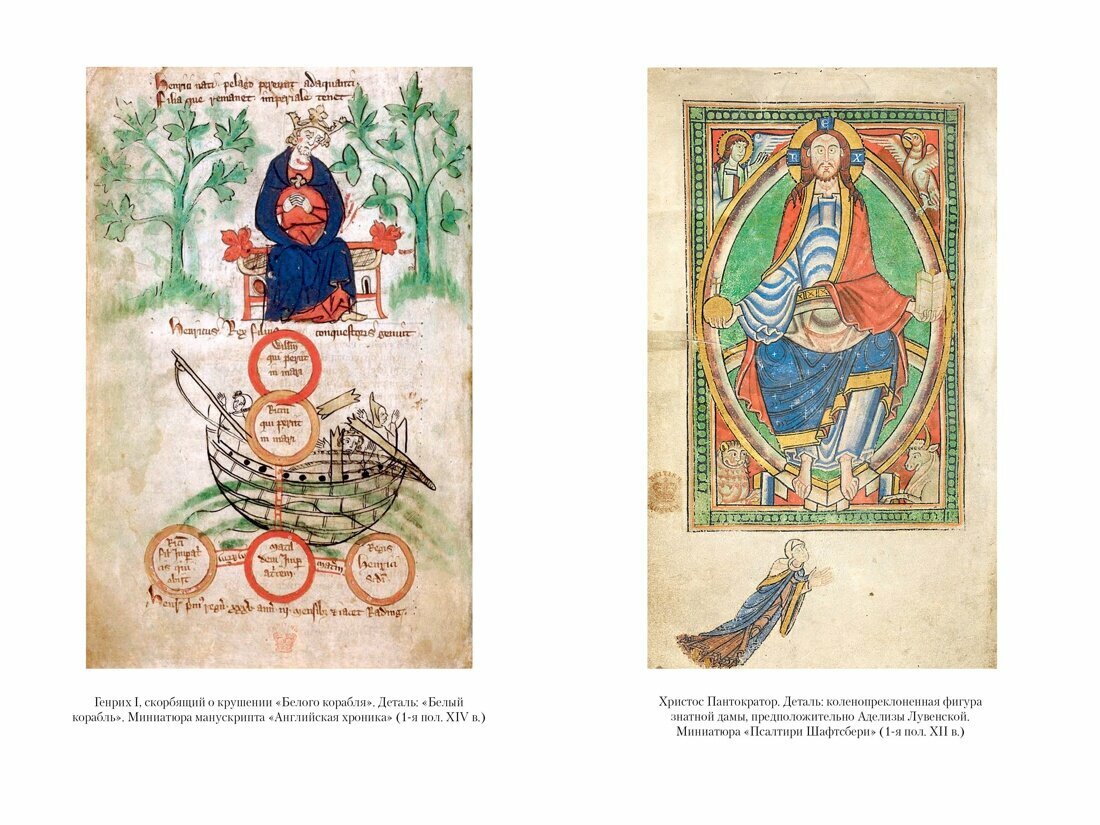 Henrici nati pelago pereunt adaquanti
Filia que remanet imperiale tenet
Henricus Rex filius conquestoris genuit
Willm
qui periit
in mari
Ricm
qui periit
in mari
Ric
cis qui
obiit
matil
dem Imp
Regis
Henrici
Генрих I, скорбящий о крушении «Белого корабля». Деталь: «Белый
корабль». Миниатюра манускрипта «Английская хроника» (1-я пол. XIV в.)
Христос Пантократор. Деталь: коленопреклоненная фигура
знатной дамы, предположительно Аделизы Лувенской.
Миниатюра «Псалтири Шафтсбери» (1-я пол. XII в.)